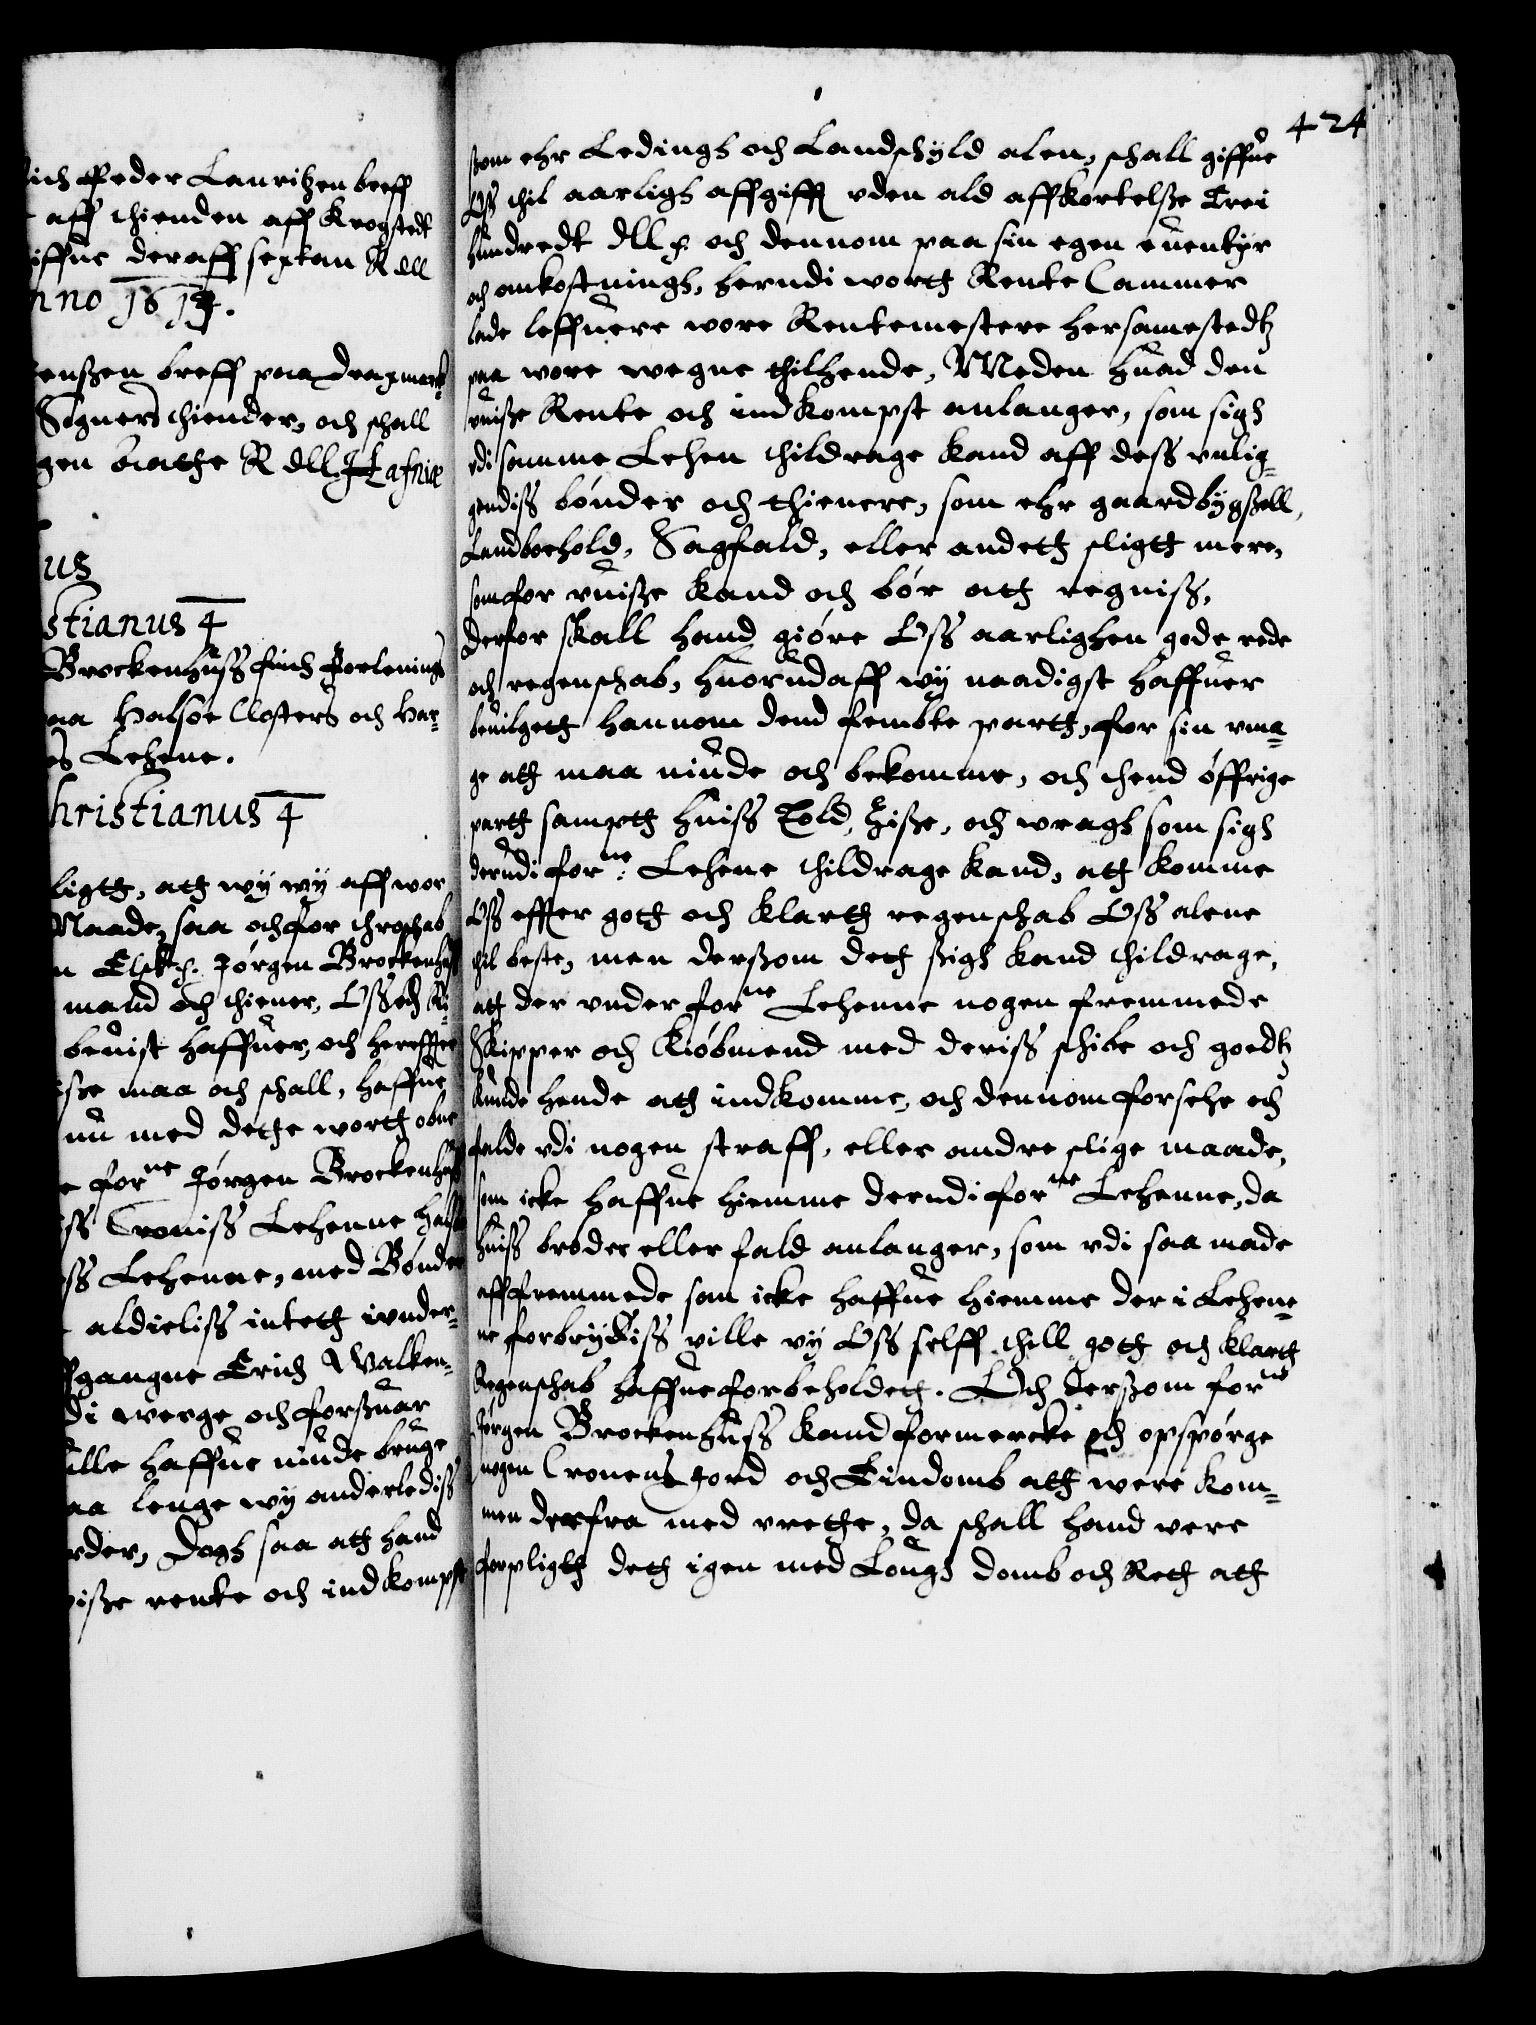 ich Peder Lauritzen breff
aff thienden aff Krogstedt
iffue deraff sextan Rdll
nno 1614.
enszen breff paa Dragmark
Sogners thiender, och schall
gen Otthe Rdll. Hafniæ
us
stianus 4
Brockenhuss fich Forlenings
aa Halsöe Closters och Har-
es Lehene.
hristianus 4
ligth, att wÿ wÿ aff wor
Naade, saa och for throschab
n Elsk. Jørgen Brockenhuss
mand och thiener, Oss och Ri-
beuist haffuer, och hereffter
isze maa och schall, haffue
nu med dethe worth obne
e forne Jørgen Brockenhuss
iss Croniss Lehenne Hals
ss Lehenne, med Bønder
aldieliss inteth wnder-
ffgangne Erich Walken-
di werge och forsuar
ulle haffue niude bruge
aa lenge wÿ anderlediss
rder, Dogh saa ath hand
isze rente och indkompst
424
som ehr Ledings och Landschÿld alen, schall giffue
Oss thil aarligh affgifft vden ald affkortelsze Trei
hundredt dll. och dennom paa sin egen euentÿr
och omkostningh, herudi worth Rente Cammer
lade leffuere wore Rentemestere hersamestedtz
paa wore wegne thilhende, Meden huad den
uuisze Rente och indkompst anlanger, som sigh
vdi samme Lehen thildrage kand aff dess vnlig-
gendiss bønder och thienere, som ehr gaardbÿgszell,
Landboehold, Sagfald, eller andeth sligtt mere,
som for vuisze kand och bør ath regniss,
derfor skall hand giøre Oss aarlighen gode rede
och regenschab, huorudaff wÿ naadigst haffuer
beuilgeth hannom dend fembte parth, for sin vma-
ge ath maa niude och bekomme, och thend øffrige
parth sampth huiss Told, Sisze, och wragh som sigh
derudi forne: Lehene thildrage kand, ath komme
Oss effter goth och klarth regenschab Oss alene
thil beste, men derszom deth szigh kand thildrage,
att der vnder forne Lehenne nogen fremmede
Skipper och Kiøbmend med deriss schibe och goedtz
kunde hende ath indkomme, och dennom forsehe och
falde vdi nogen straff, eller andre slige maade,
som icke haffue hiemme derudi forne Lehenne, da
huiss brøder eller fald anlanger, som vdi saa made
aff fremmede som icke haffue hiemme der i Lehen-
ne forbrÿdiss ville vÿ Oss selff thill goth och klarth
Regenschab haffue forbeholdeth. Och derszom forne
Jørgen Brockenhuss kand formercke och opspørge
nogen Cronens Jord och Eindomb ath were kom-
men derfra med vrethe, da schall hand were
forpligth deth igen med Lough domb och Reth ath